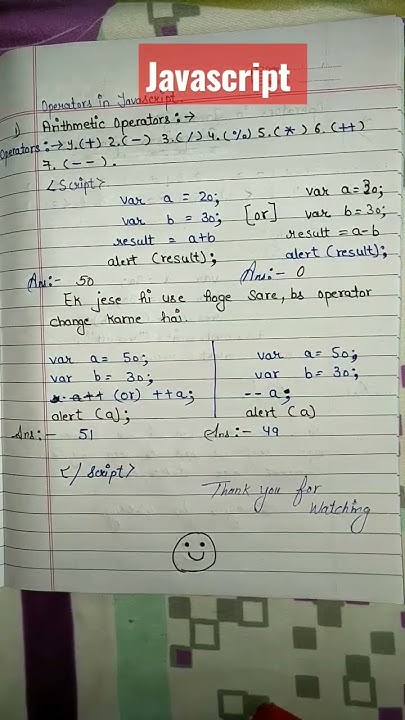 Javascript
Operators in Javascript.
1) Arithmetic Operators :→
Operators :→ 1.(+) 2.(-) 3.(/) 4.(%) 5.(*) 6.(++)
7.(--).
<Script>
var a = 20;
var b = 30;
result = a+b
alert (result);
Ans:- 50
[or]
var a = 30;
var b = 30;
result = a-b
alert (result);
Ans:- 0
Ek jese hi use hoge sare, bs operator
change karne hai.
var a = 50;
var b = 30;
a++ (or) ++a;
alert (a);
Ans:- 51
var a = 50;
var b = 30;
--a;
alert (a)
Ans:- 49
</Script>
Thank you for
Watching